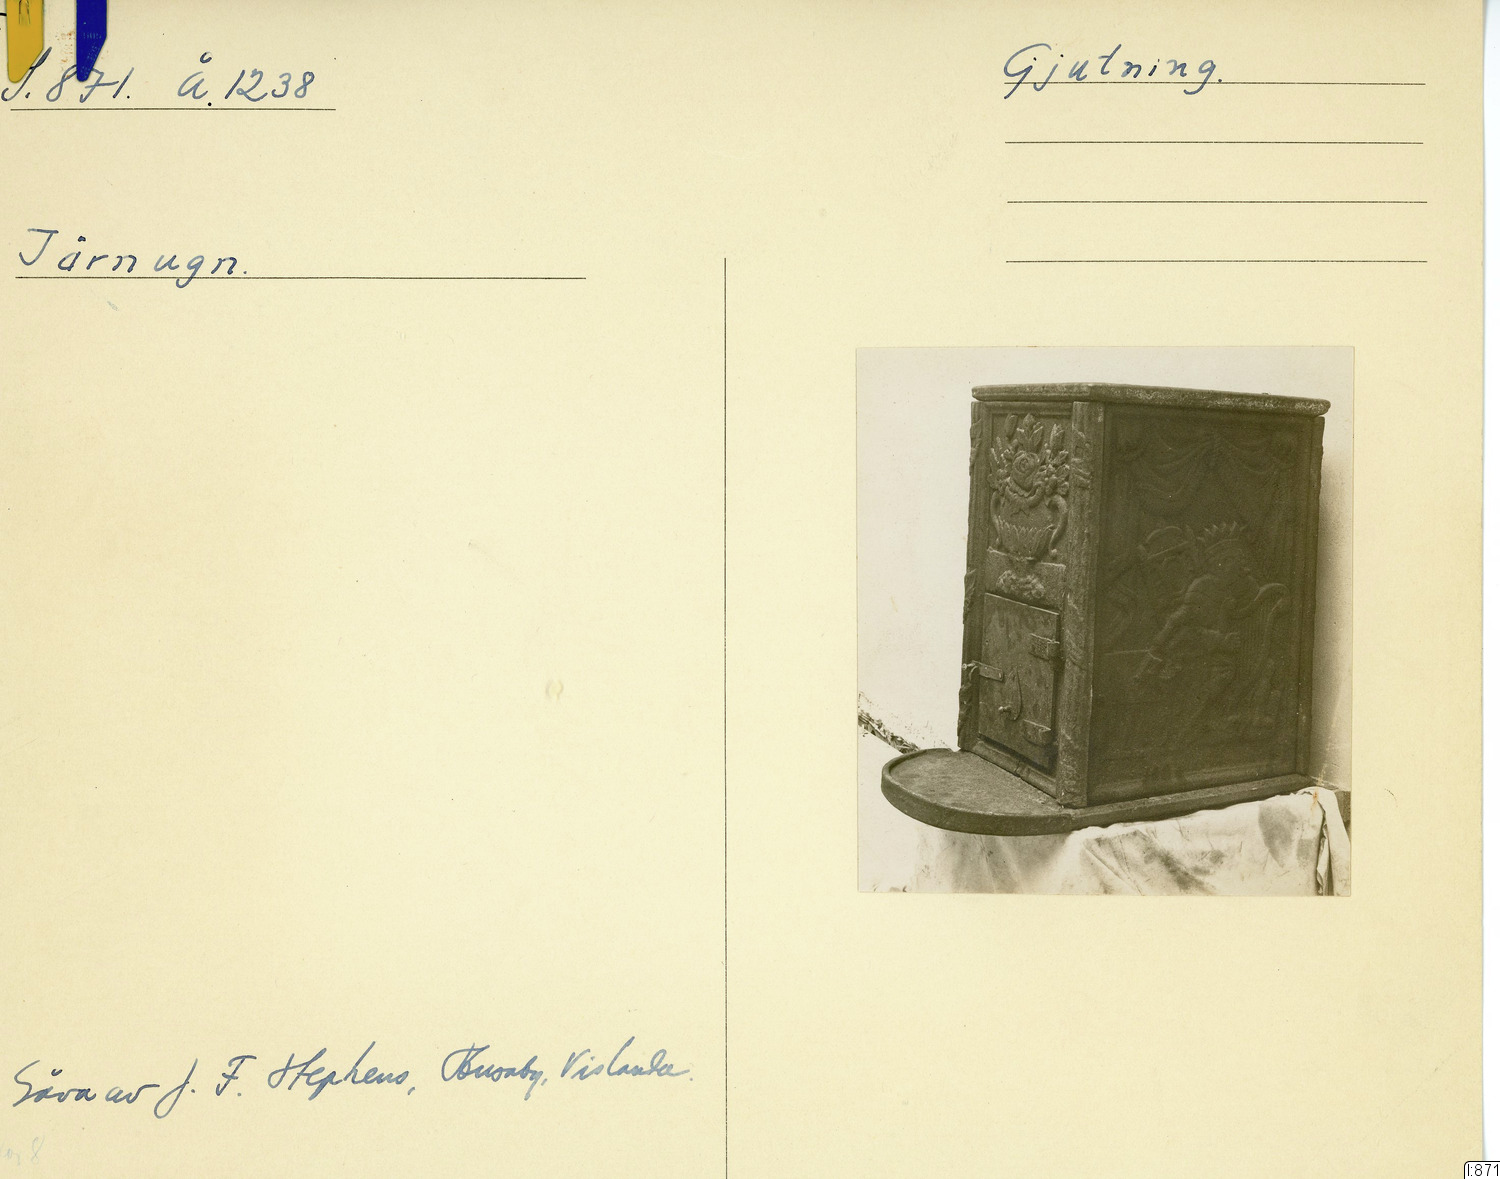 I. 871. Å. 1238
Gjutning.
Järnugn.
Gåva av J. F. Stephens, Huseby, Vislanda.
I:871